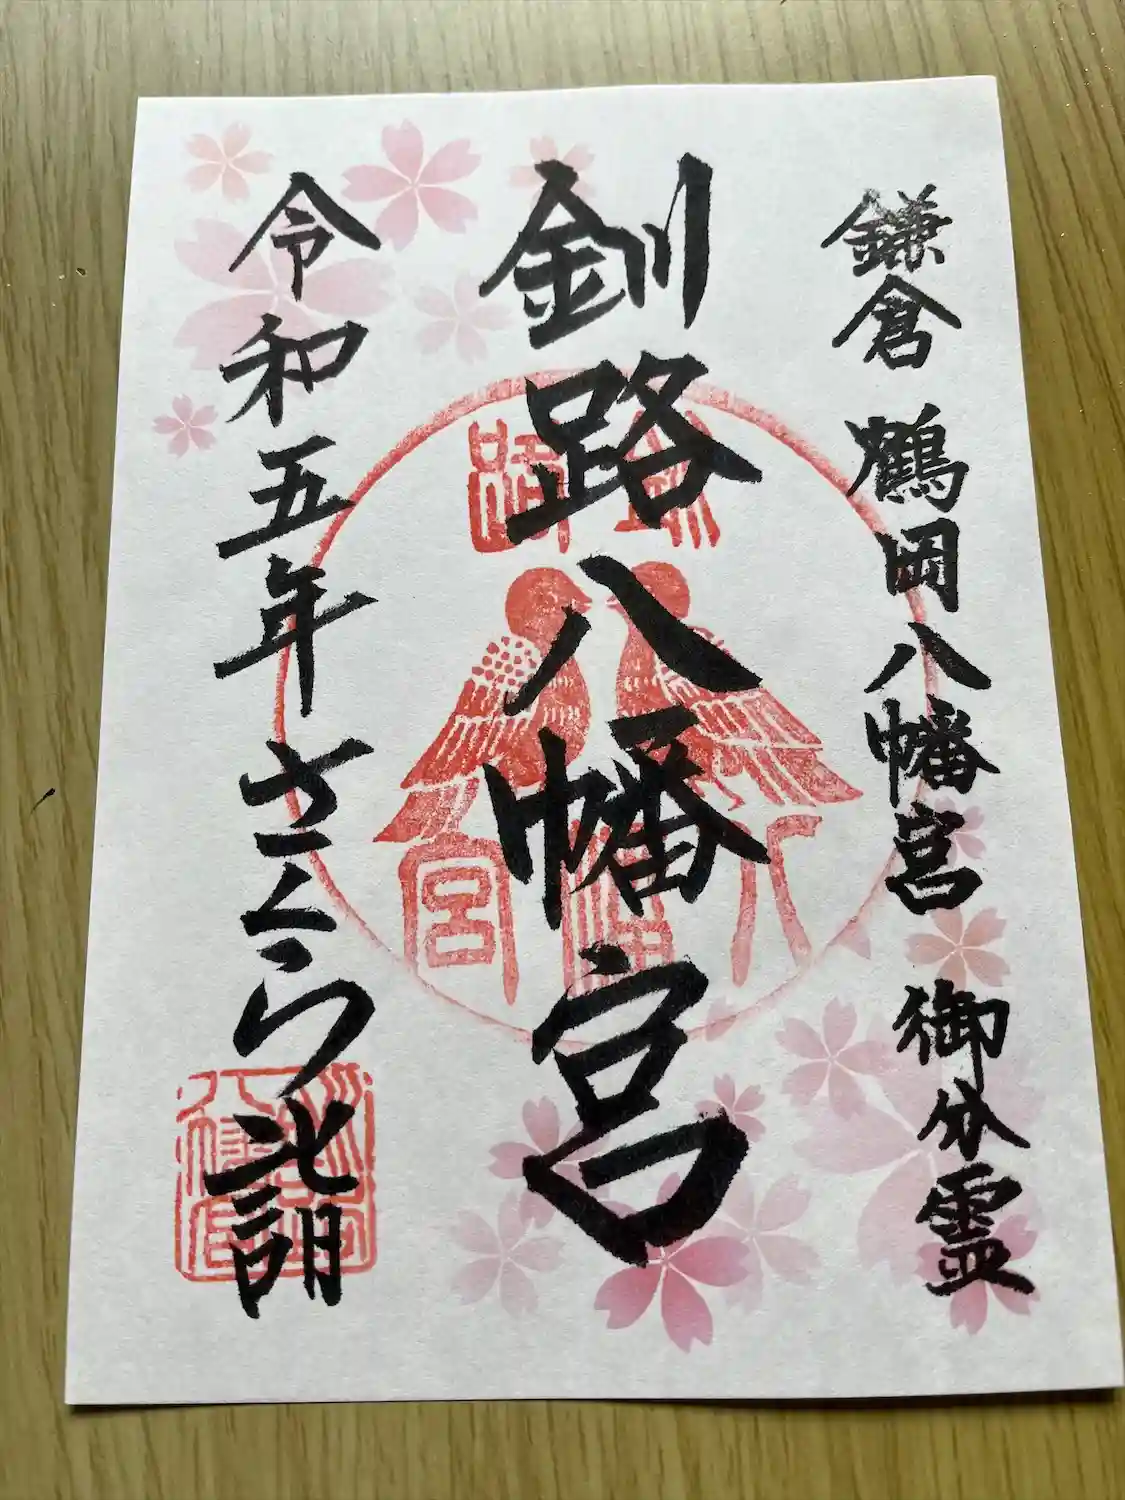 鎌倉 鶴岡八幡宮 御分霊
釧路八幡宮
令和五年 さくら北詣
釧路
八幡宮